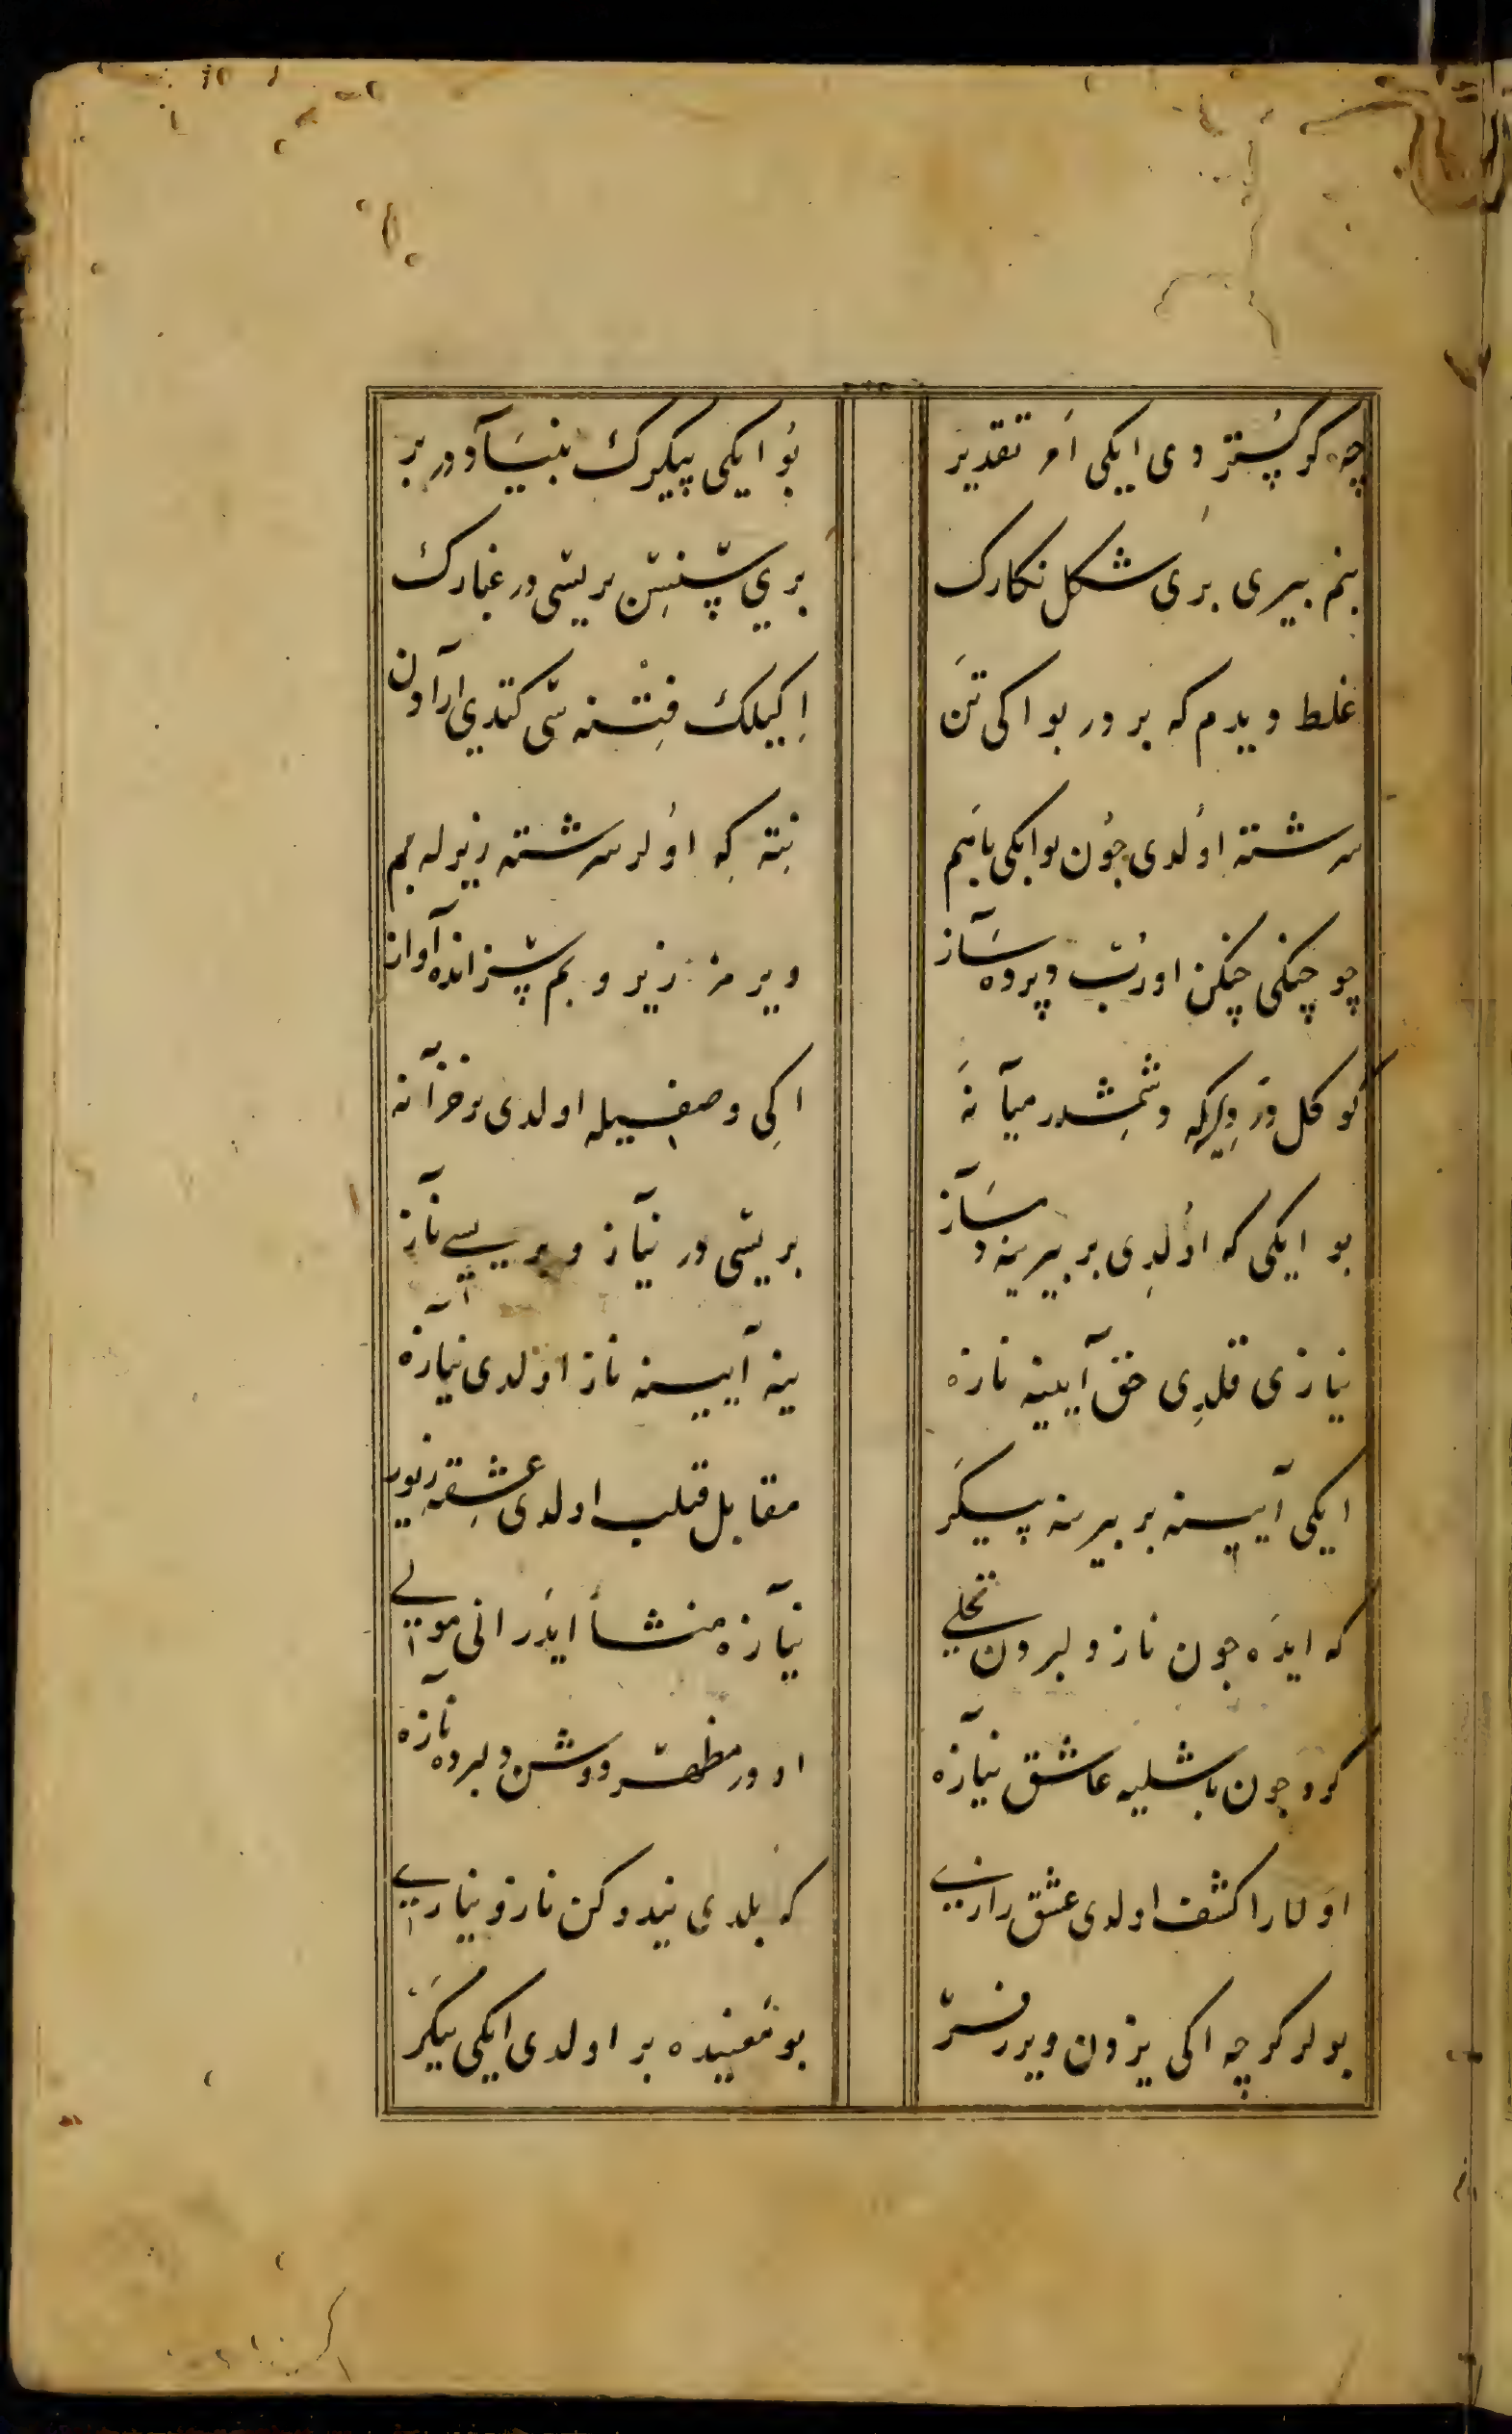 چه کر کُستردی ایکی اَمر تقدیر
بُو ایکی پیکرک بنیَادی در بر
بنم بیری بری شکل نکارک
بری پشنتِن بریسی در غبارک
غلط دیدم که بر در بو اکی تَن
اِکیلک فِتْنه سی کتدی ارادن
سرشته اوُلدی چُون بو ایکی باهَم
نِته کِه اوُلر سرشته زیر له بم
چو چنکی چنکن اورُب پرده سَاز
ویر مز زیر و بم اَوازه آواز
اکِی وصفیله اولدی بر خزآنه
بو ایکی که اوُلدِی بر بیرینه دمسَآز
بریسی در نیَآز و بریسی نآز
نیازی قلدِی حق آیینه نازه
ینه آیینه ناز اولدی نیازه
ایکی آیینه بر بیرینه پیکَر
مقابل قلب اولدی عشِقه
که ایدَه چون ناز دلبردن تجلی
نیآزه منشأ ایدَر انی مولی
کرو چون باشلیه عاشق نیآزه
او در مظهر دوشن دلبرده نآزه
اوَلارا کشف اولدی عشق رازی
که بلدی نیدوکن ناز و نیازی
بولر کرچه اکی یزدن ویرر
بو مَعنیده بر اولدی ایکی پیکَر